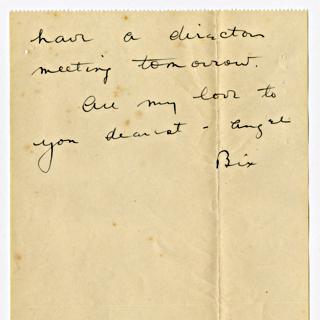 have a directors
meeting tomorrow.
All my love to
you dearest - angel
Bix